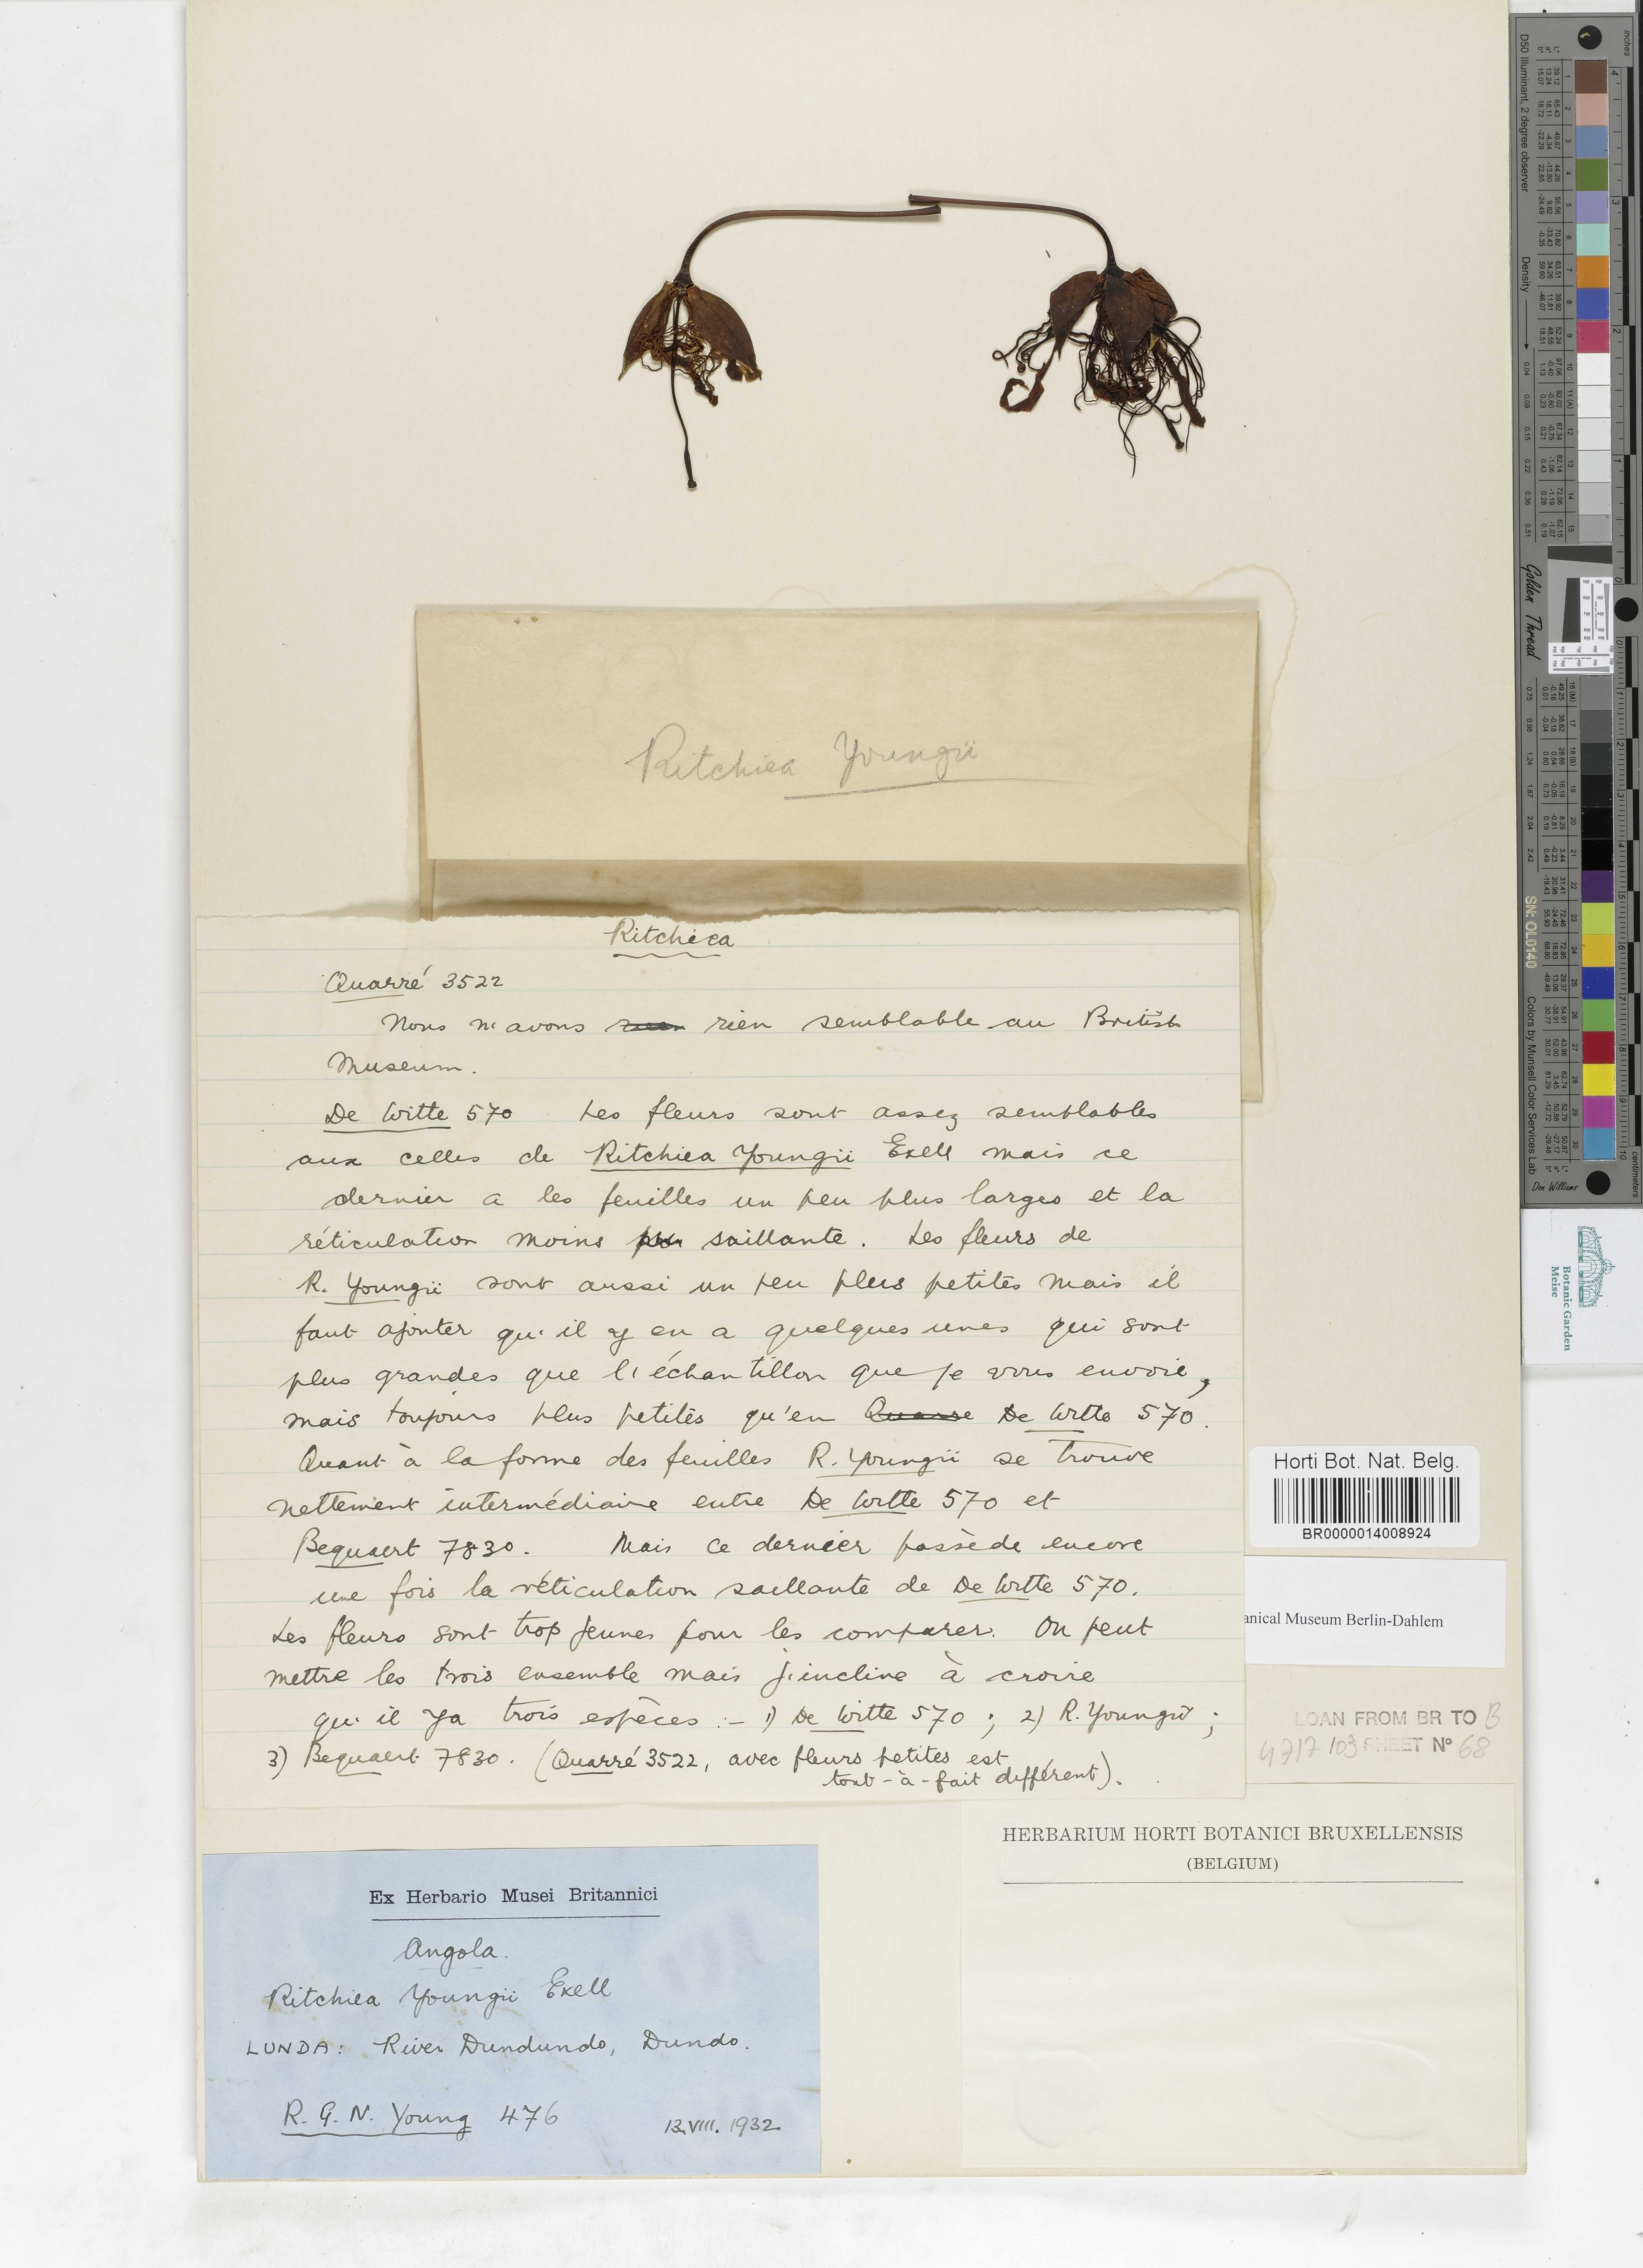 Ritchiea Youngii
Ritchiea
Quarré 3522
Nous n'avons rien semblable au British
Museum.
De Witte 570 Les fleurs sont assez semblables
aux celles de Ritchiea Youngii Exell mais ce
dernier a les feuilles un peu plus larges et la
réticulation moins saillante. Les fleurs de
R. Youngii sont aussi un peu plus petites mais il
faut ajouter qu'il y en a quelques unes qui sont
plus grandes que l'échantillon que je vous envoie,
mais toujours plus petites qu'en Quarre De Witte 570.
Quant à la forme des feuilles R. Youngii se trouve
nettement intermédiaire entre De Witte 570 et
Bequaert 7830. Mais ce dernier possède encore
une fois la réticulation saillante de De Witte 570.
Les fleurs sont trop jeunes pour les comparer. On peut
mettre les trois ensemble mais j'incline à croire
qu'il y a trois espèces :- 1) De Witte 570 ; 2) R. Youngii ;
3) Bequaert 7830. (Quarré 3522, avec fleurs petites est
tout-à-fait différent).
Horti Bot. Nat. Belg.
BR0000014008924
anical Museum Berlin-Dahlem
LOAN FROM BR TO B
4717/03 SHEET N° 68
HERBARIUM HORTI BOTANICI BRUXELLENSIS
(BELGIUM)
Ex Herbario Musei Britannici
Angola.
Ritchiea Youngii Exell
LUNDA: River Dundundo, Dundo.
R. G. N. Young 476 13.VIII.1932
D50 Illuminant, 2 degree observer
Density
Golden Thread
SN: OL0140
Colors by Munsell Color Services Lab
Don Williams
inches
centimeters
Botanic Garden
Meise